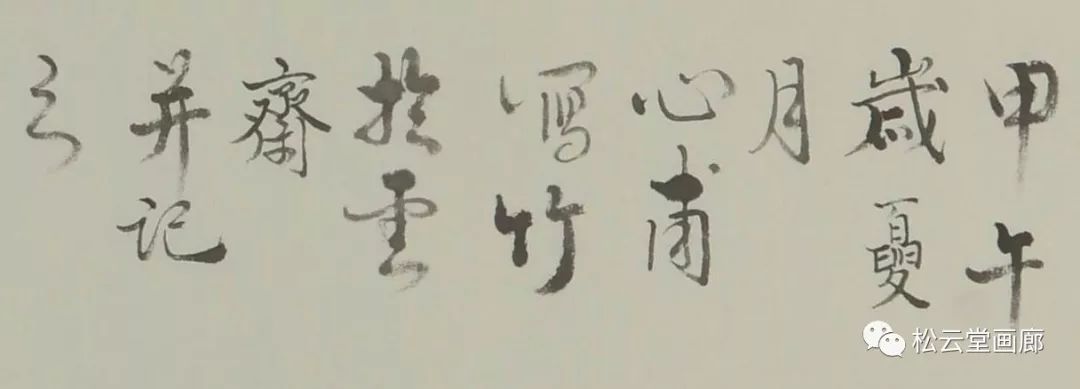 甲午
歲夏
月
心甫
写竹
於雲
齋
并记
之
松云堂画廊